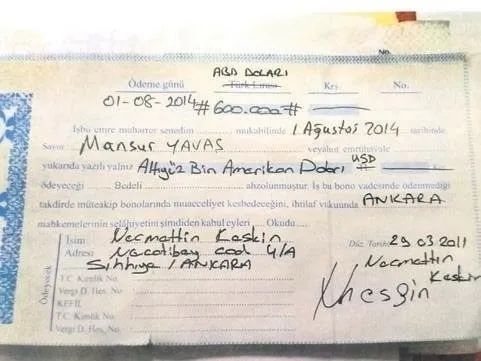 No.
ABD DOLARI
Ödeme günü Türk Lirası Krş No.
01-08-2014 #600.000#
İşbu emre muharrer senedin mukabilinde 1 Ağustos 2014 tarihinde
Sayın Mansur YAVAŞ veyahut emrühavale
yukarıda yazılı yalnız Altıyüz Bin Amerikan Doları USD Krş
ödeyeceği Bedeli ahzolunmuştur. İş bu bono vadesinde ödenmediği
takdirde müteakip bonolarında muacceliyet kesbedeceğini, ihtilaf vukuunda ANKARA
mahkemelerinin selâhiyetini şimdiden kabul eyleri Okudu
Ödeyecek
İsim Necmettin Keskin Düz. Tarihi 29 03 2011
Adresi Necatibey cad 4/A Necmettin
Sıhhiye / ANKARA Keskin
T.C. Kimlik No.
Vergi D. Hes. No
KEFİL
T.C. Kimlik No.
Vergi D. Hes. No.